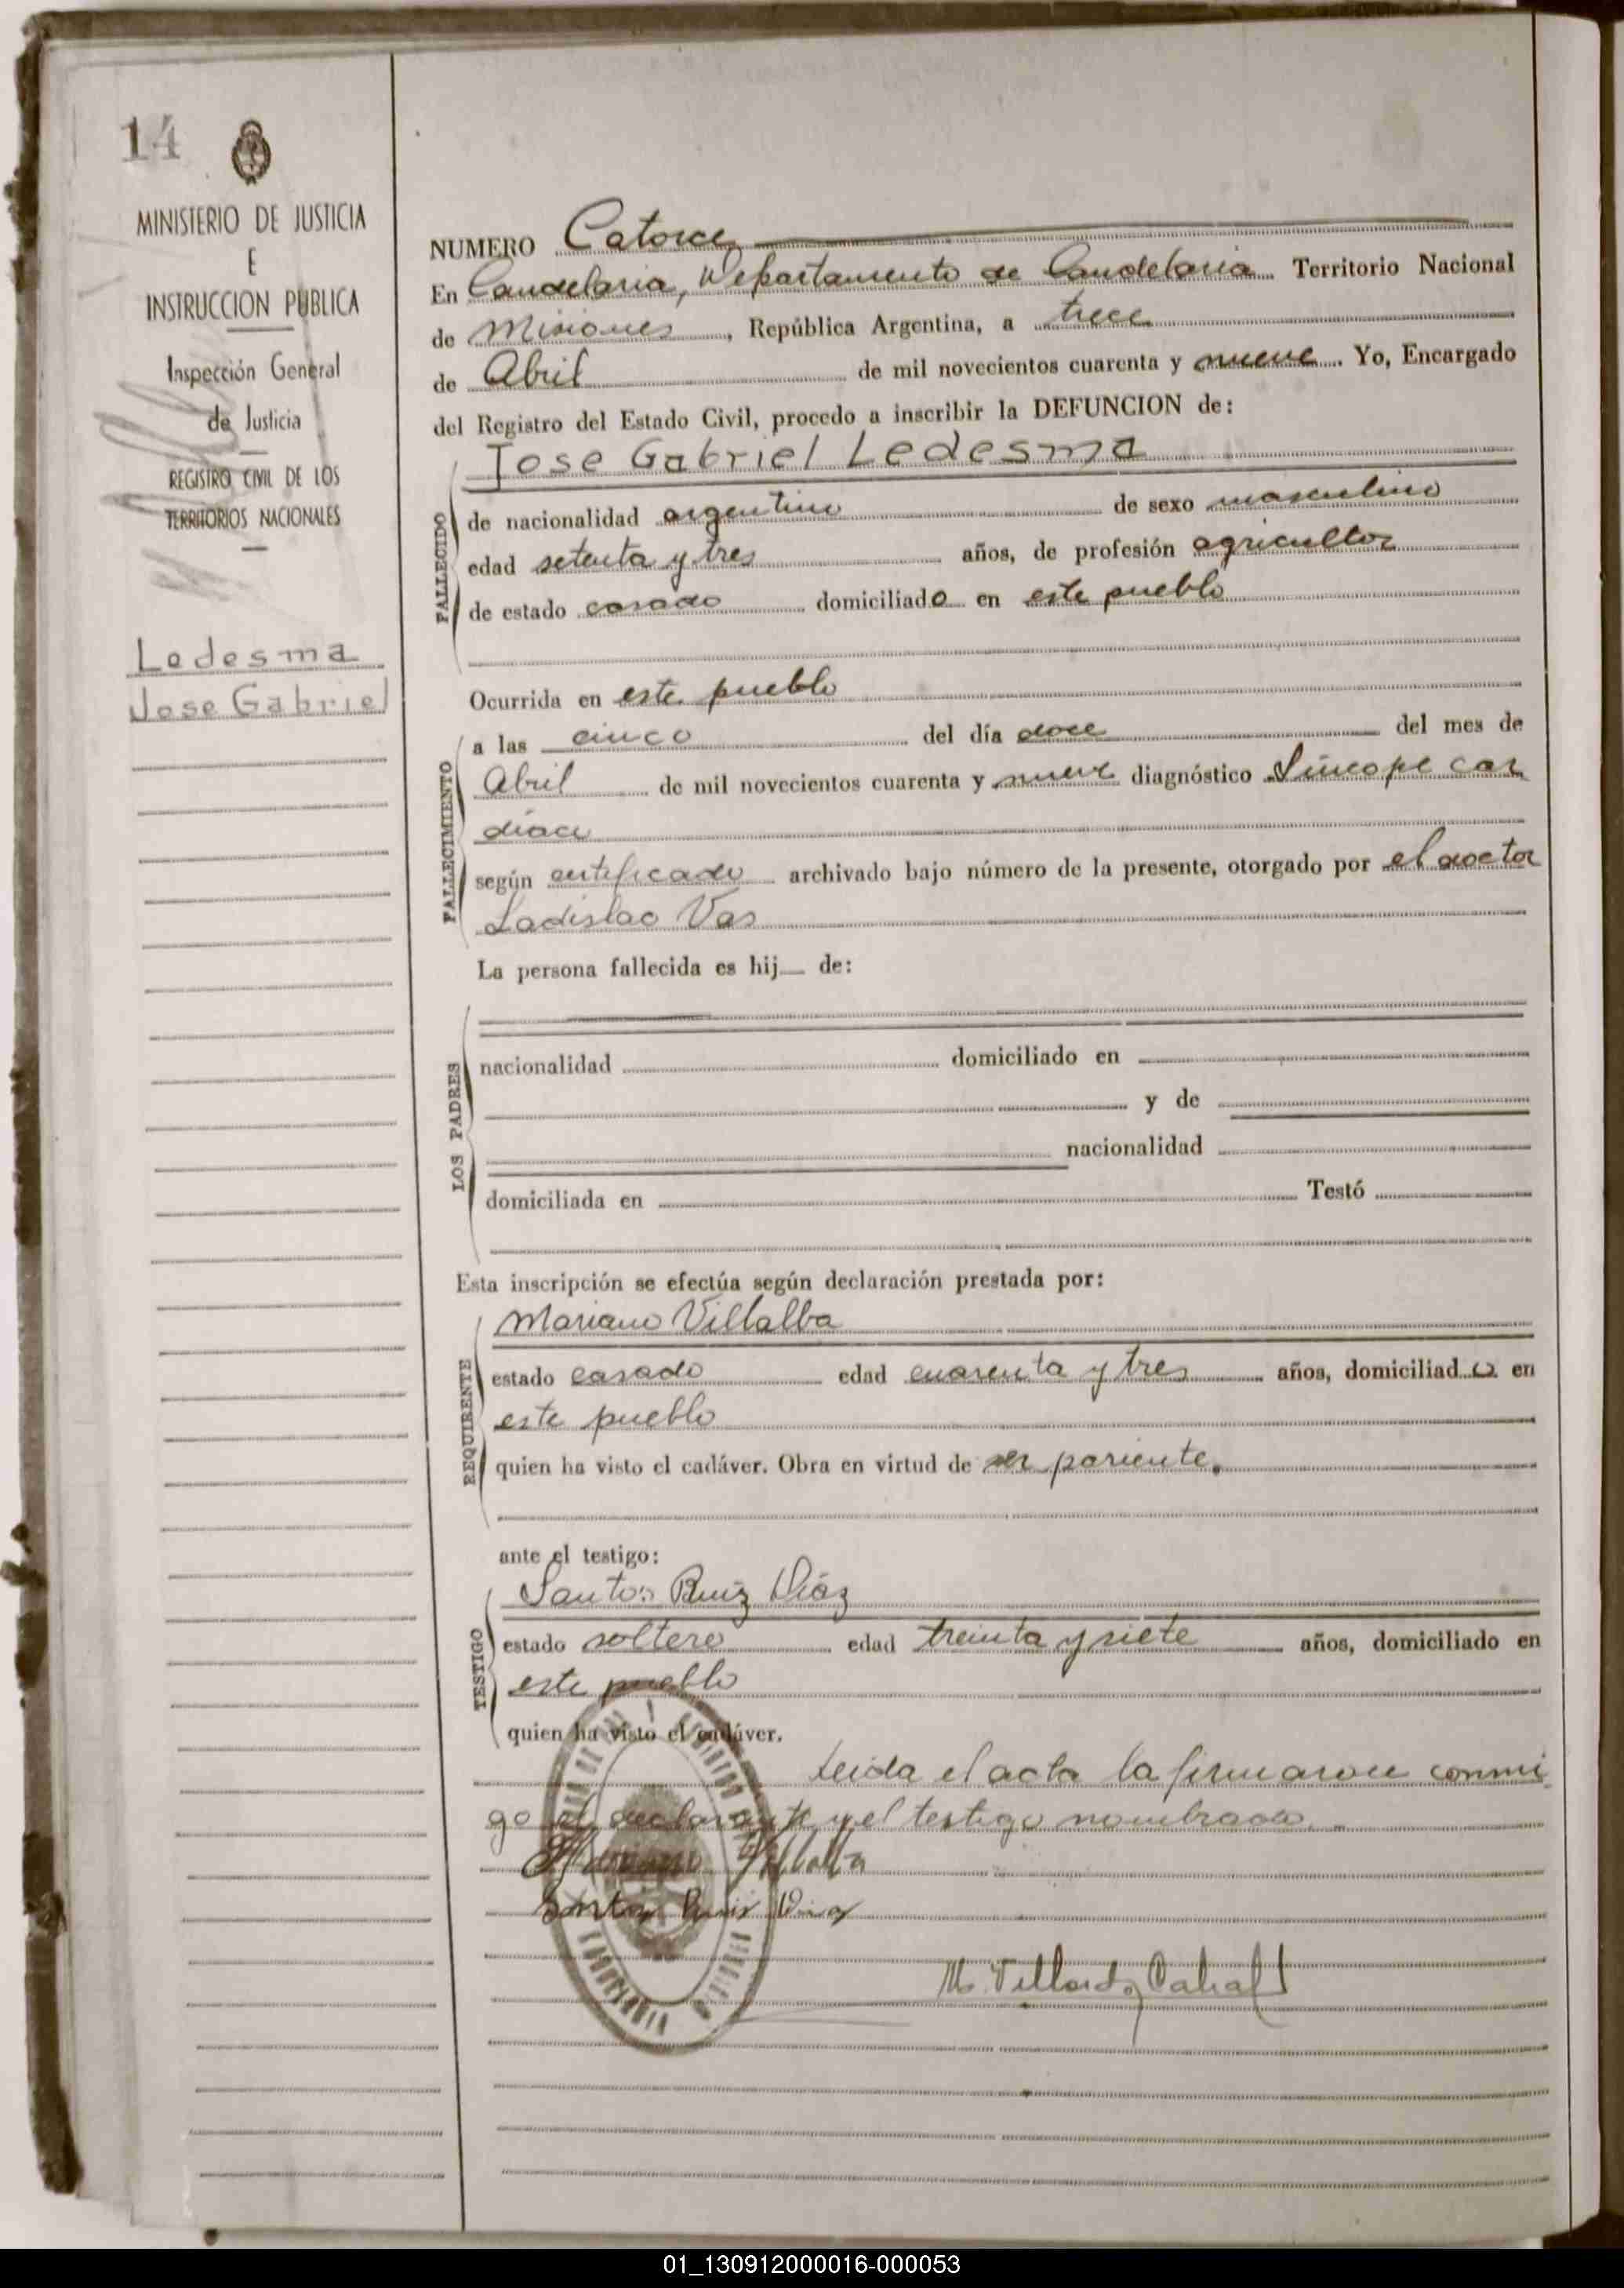 14
MINISTERIO DE JUSTICIA
E
INSTRUCCION PUBLICA
Inspección General
de Justicia
REGISTRO CIVIL DE LOS
TERRITORIOS NACIONALES
Ledesma
Jose Gabriel
NUMERO Catorce
En Candelaria, Departamento de Candelaria Territorio Nacional
de Misiones, República Argentina, a trece
de Abril de mil novecientos cuarenta y nueve. Yo, Encargado
del Registro del Estado Civil, procedo a inscribir la DEFUNCION de:
FALLECIDO
Jose Gabriel Ledesma
de nacionalidad argentino de sexo masculino
edad setenta y tres años, de profesión agricultor
de estado casado domiciliado en este pueblo
Ocurrida en este pueblo
FALLECIMIENTO
a las cinco del día doce del mes de
Abril de mil novecientos cuarenta y nueve diagnóstico Síncope car
diaco
según certificado archivado bajo número de la presente, otorgado por el doctor
Ladislao Vas
La persona fallecida es hij de:
LOS PADRES
nacionalidad domiciliado en
y de
nacionalidad
domiciliada en Testó
Esta inscripción se efectúa según declaración prestada por:
REQUIRENTE
Mariano Villalba
estado casado edad cuarenta y tres años, domiciliado en
este pueblo
quien ha visto el cadáver. Obra en virtud de ser pariente.
ante el testigo:
TESTIGO
Santos Ruiz Díaz
estado soltero edad treinta y siete años, domiciliado en
este pueblo
quien ha visto el cadáver.
Leida el acta la firmaron conmi
go el declarante y el testigo nombrado.
Mariano Villalba
Santos Ruis Diaz
01_130912000016-000053